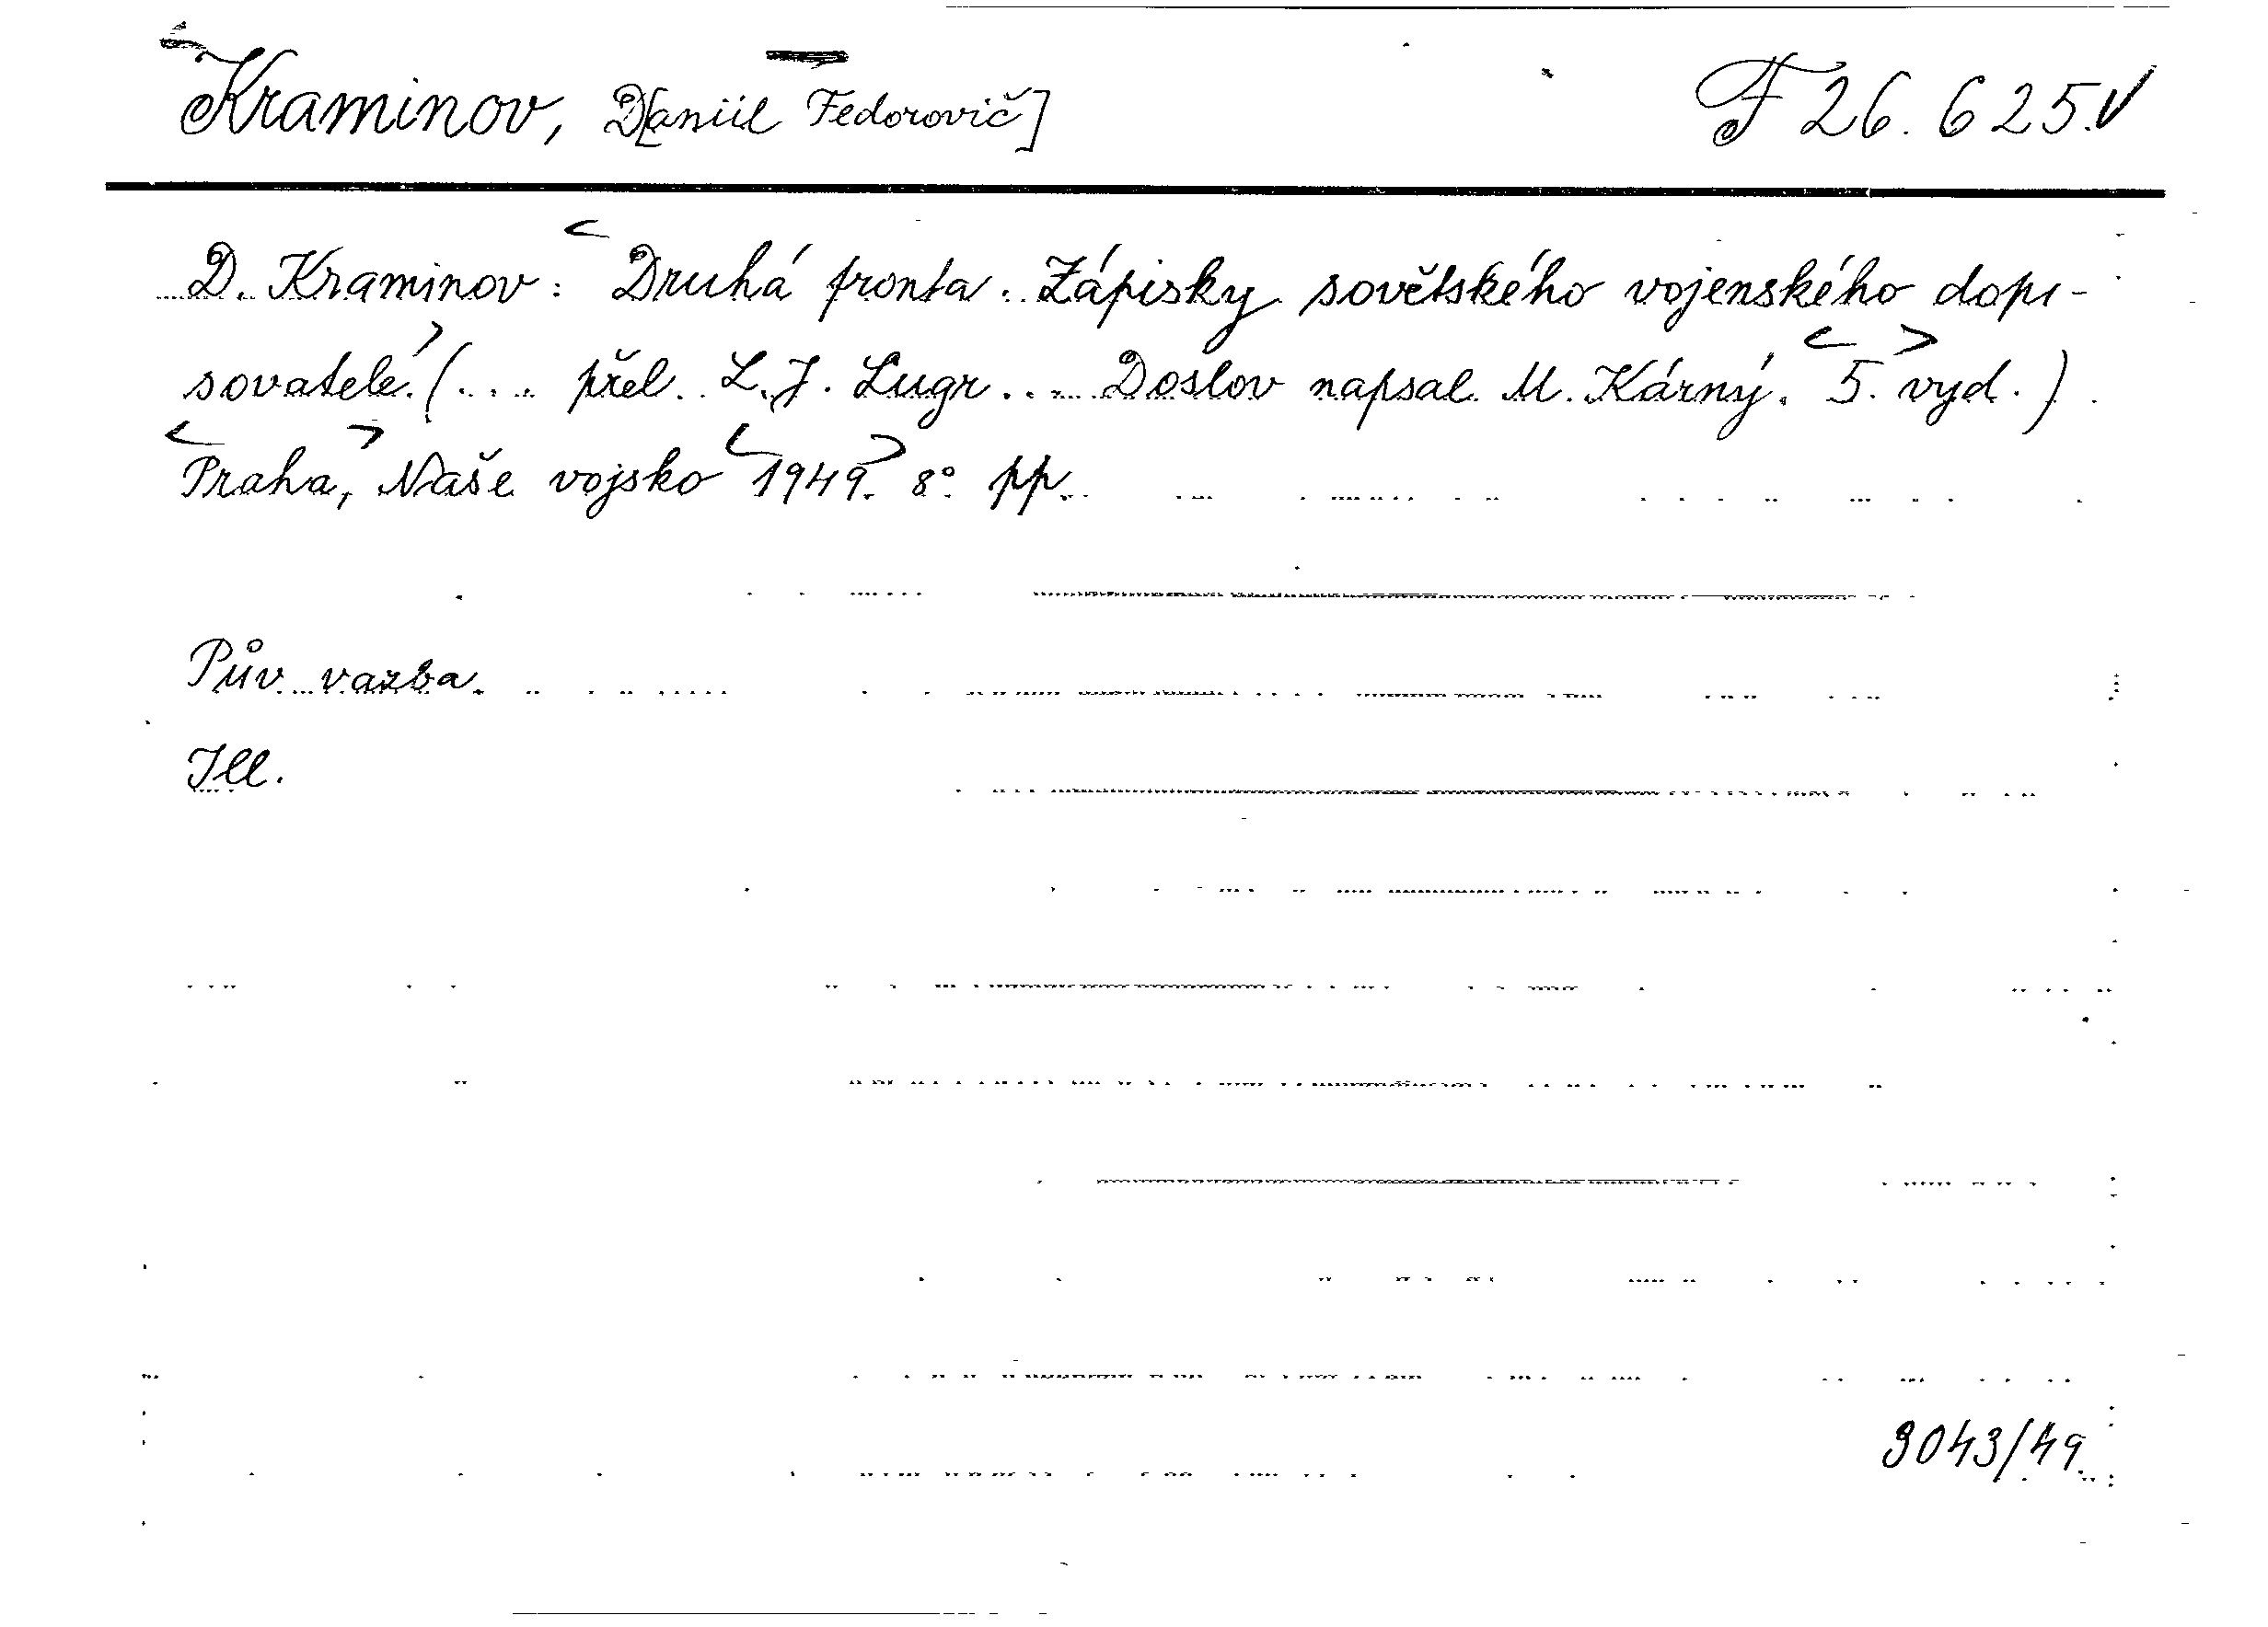 Kraminov, D[aniil Fedorovič] F 26.625.
D. Kraminov: <Druhá fronta. Zápisky sovětského vojenského dopi-
sovatele.> (... přel. L. J. Lugr... Doslov napsal M. Kárný. <5.> vyd.)
<Praha,> Naše vojsko <1949.> 8° pp.
Pův. vazba.
Ill.
3043/49.